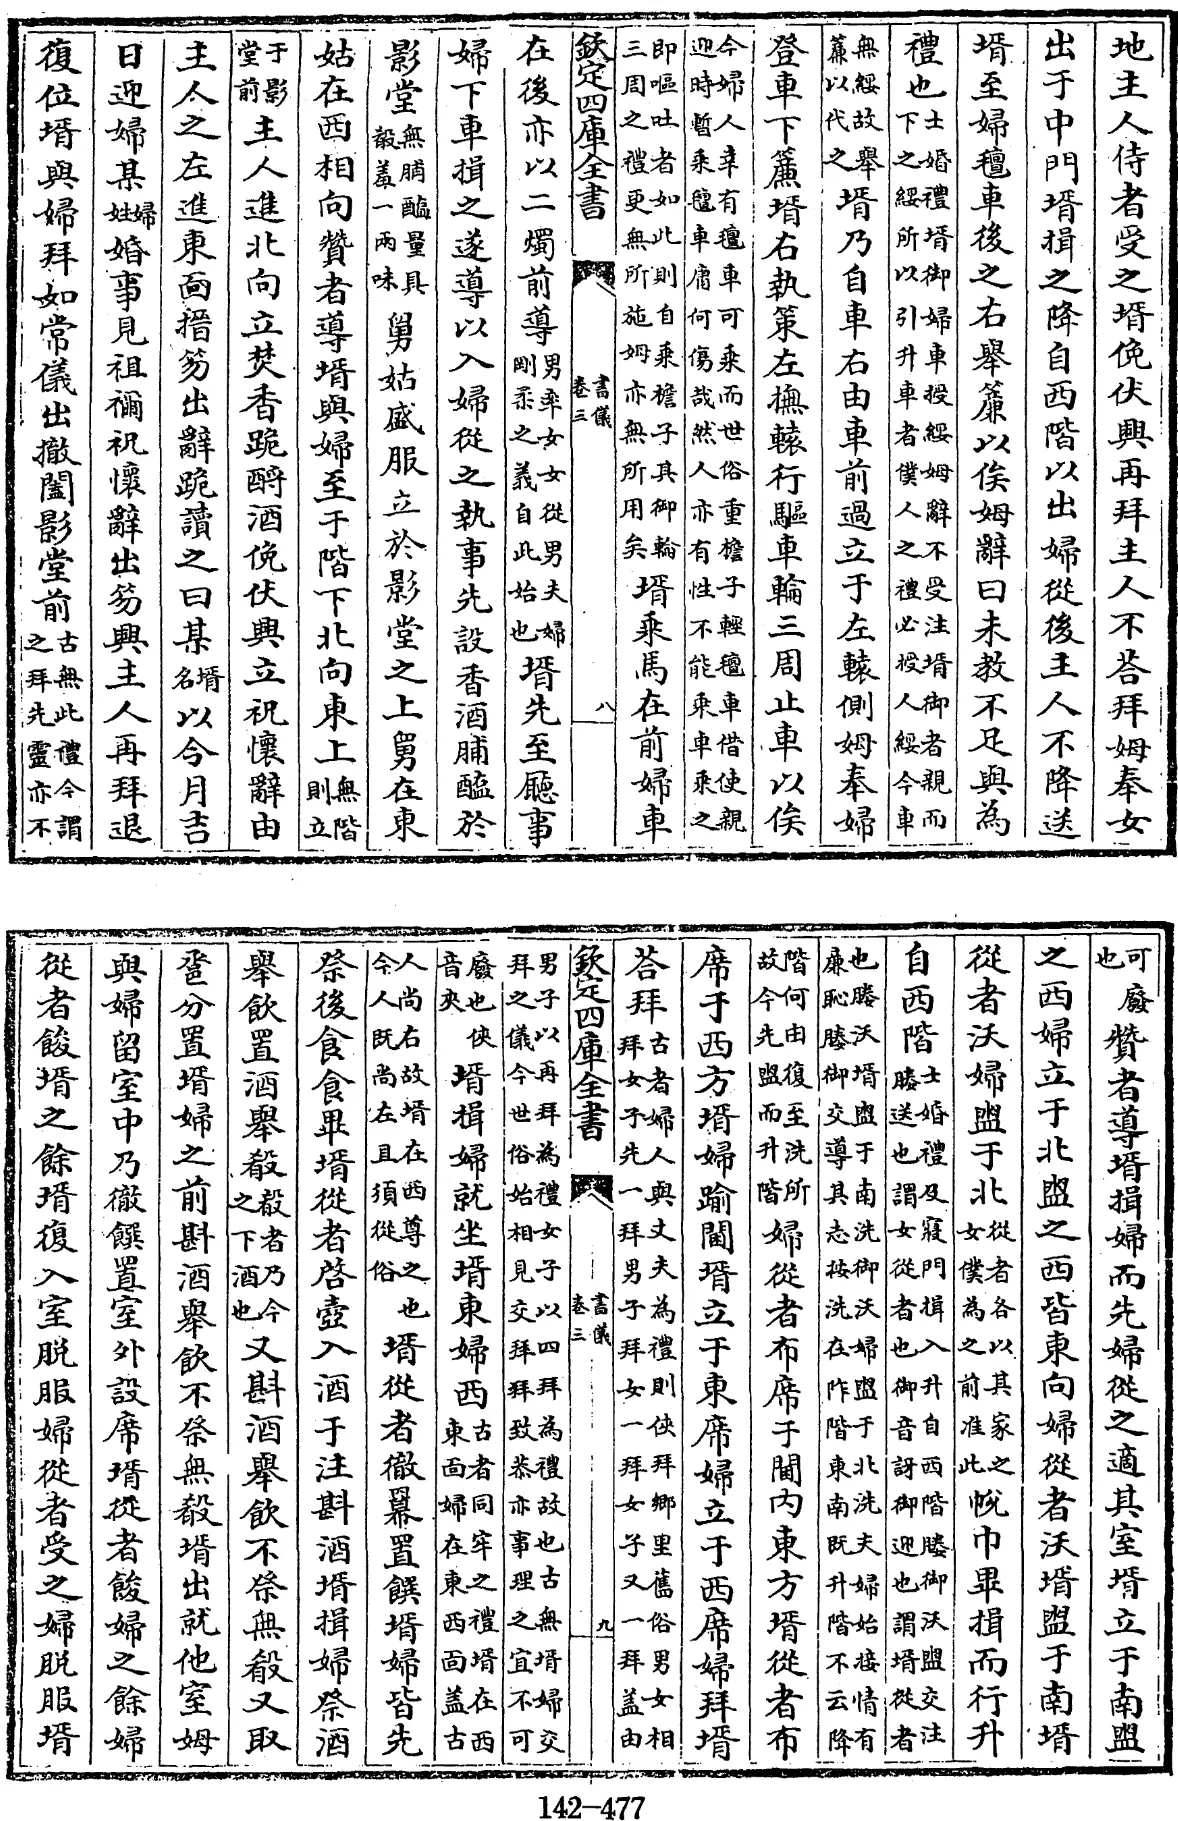 地主人侍者受之壻俛伏興再拜主人不荅拜姆奉女
出于中門壻揖之降自西階以出婦從後主人不降送
壻至婦氊車後之右舉簾以俟姆辭曰未教不足與為
禮也士婚禮壻御婦車授綏姆辭不受注壻御者親而下之綏所以引升車者僕人之禮必授人綏今車
無綏故舉簾以代之壻乃自車右由車前過立于左轅側姆奉婦
登車下簾壻右執策左撫轅行驅車輪三周止車以俟
今婦人幸有氊車可乘而世俗重檐子輕氊車借使親迎時暫乘氊車庸何傷哉然人亦有性不能乘車乘之
即嘔吐者如此則自乘檐子其御輪三周之禮更無所施姆亦無所用矣壻乘馬在前婦車
欽定四庫全書 書儀卷三 八
在後亦以二燭前導男率女女從男夫婦剛柔之義自此始也壻先至廳事
婦下車揖之遂導以入婦從之執事先設香酒脯醢於
影堂無脯醢量具殽羞一兩味舅姑盛服立於影堂之上舅在東
姑在西相向贊者導壻與婦至于階下北向東上無階則立
于影堂前主人進北向立焚香跪酹酒俛伏興立祝懷辭由
主人之左進東面搢笏出辭跪讀之曰某壻名以今月吉
日迎婦某婦姓婚事見祖禰祝懷辭出笏興主人再拜退
復位壻與婦拜如常儀出撤闔影堂前古無此禮今謂之拜先靈亦不
可廢也贊者導壻揖婦而先婦從之適其室壻立于南盥
之西婦立于北盥之西皆東向婦從者沃壻盥于南壻
從者沃婦盥于北從者各以其家之女僕為之前准此帨巾畢揖而行升
自西階士婚禮及寢門揖入升自西階媵御沃盥交注媵送也謂女從者也御音訝御迎也謂壻從者
也媵沃壻盥于南洗御沃婦盥于北洗夫婦始接情有廉恥媵御交導其志按洗在阼階東南既升階不云降
階何由復至洗所故今先盥而升階婦從者布席于閫内東方壻從者布
席于西方壻婦踰閫壻立于東席婦立于西席婦拜壻
荅拜古者婦人與丈夫為禮則俠拜鄉里舊俗男女相拜女子先一拜男子拜女一拜女子又一拜蓋由
欽定四庫全書 書儀卷三 九
男子以再拜為禮女子以四拜為禮故也古無壻婦交拜之儀今世俗始相見交拜拜致恭亦事理之宜不可
廢也俠音夾壻揖婦就坐壻東婦西古者同牢之禮壻在西東面婦在東西面蓋古
人尚右故壻在西尊之也今人既尚左且須從俗壻從者徹羃置饌壻婦皆先
祭後食食畢壻從者啓壺入酒于注斟酒壻揖婦祭酒
舉飲置酒舉殽殽者乃今之下酒也又斟酒舉飲不祭無殽又取
卺分置壻婦之前斟酒舉飲不祭無殽壻出就他室姆
與婦留室中乃徹饌置室外設席壻從者餕婦之餘婦
從者餕壻之餘壻復入室脱服婦從者受之婦脱服壻
142-477